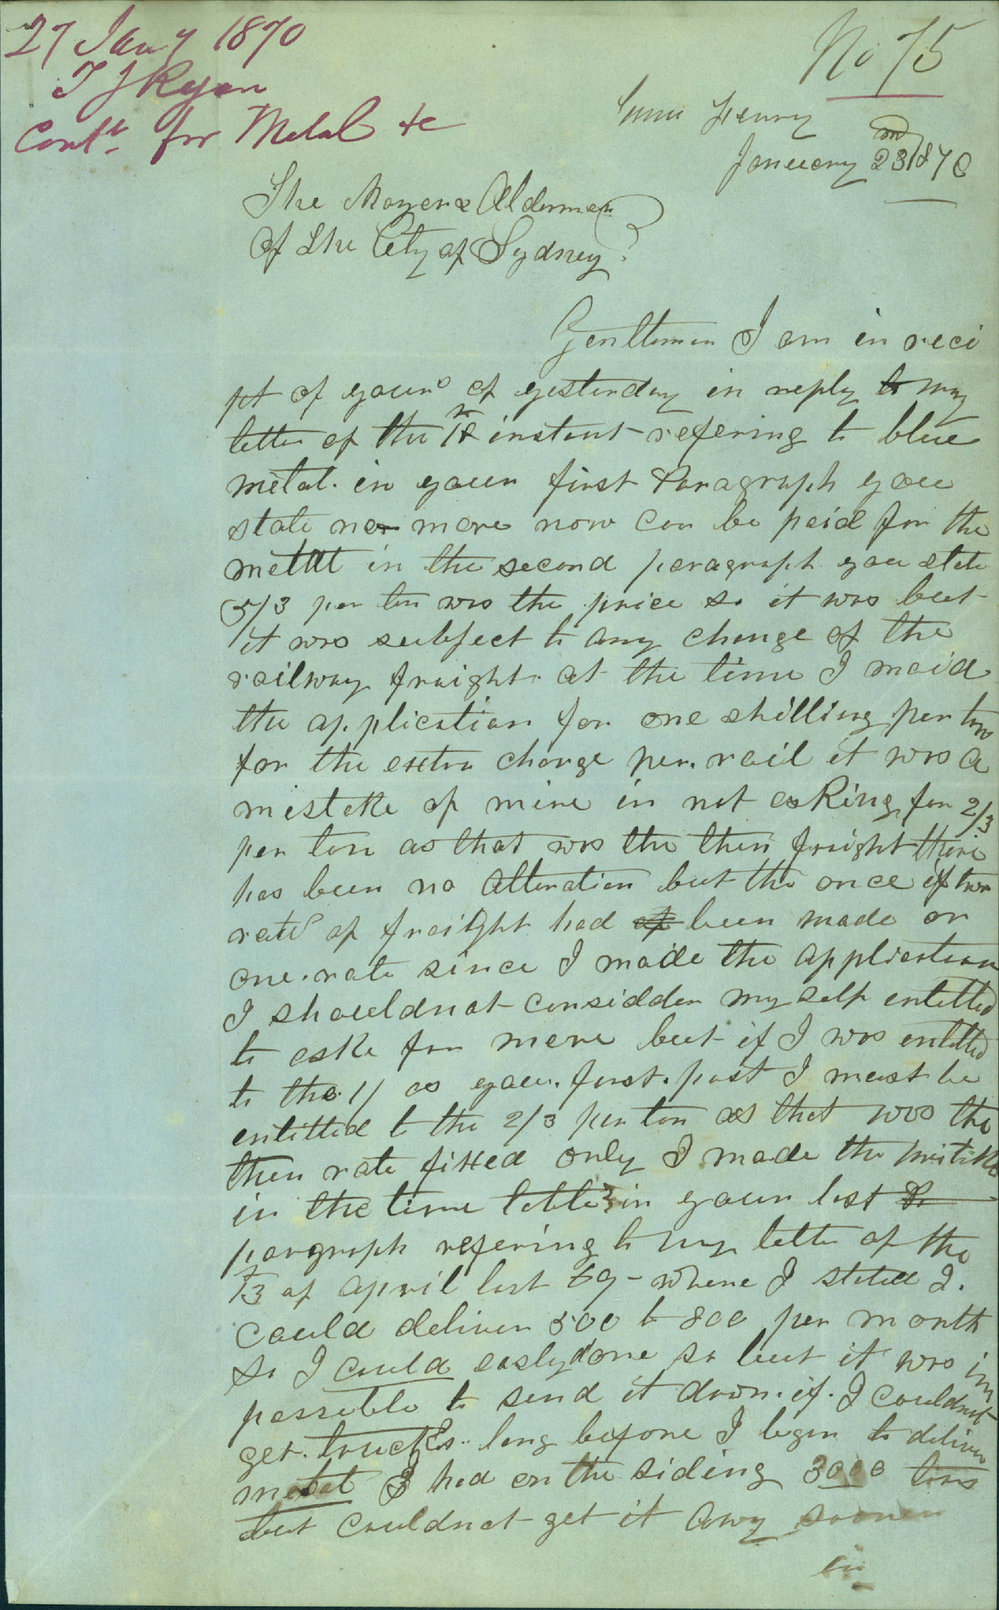 27 Jany 1870
T J Ryan
Contr. for Metal &c
No 75
Henry
January 23rd 1870
The Mayer & Alderman
of the City of Sydney
Gentlemen I am in reci
pt of yours of yesterday in reply to my
letter of the instant refering to blue
metal. in your first Paragraph you
state no more now can be paid for the
metal in the second paragraph you state
5/3 per ton was the price so it was but
it was subject to any change of the
railway fraight. at the time I maid
the application for one shilling per ton
for the extra charge per. rail it was a
mistake of mine in not asking for 2/3
per ton as that was the then fraight there
has been no alteration but the once if two
rates of fraight had been made or
one. rate since I made the application
I shouldnot considder my self entitled
to aske for more but if I was entitled
to the. 1/ as your. first. past I must be
entitled to the 2/3 per ton as that was the
then rate fixed only I made the mistake
in the time in your last
paragraph refering to my letter of the
13 of april last 69 - where I stated I.
could deliver 500 to 800 per month
so I could easly done so but it was im
possible to send it down. if. I couldnot
get. trucks. long before I began to deliver
metal I had on the siding 3000 tons
but couldnot get it away sooner
in